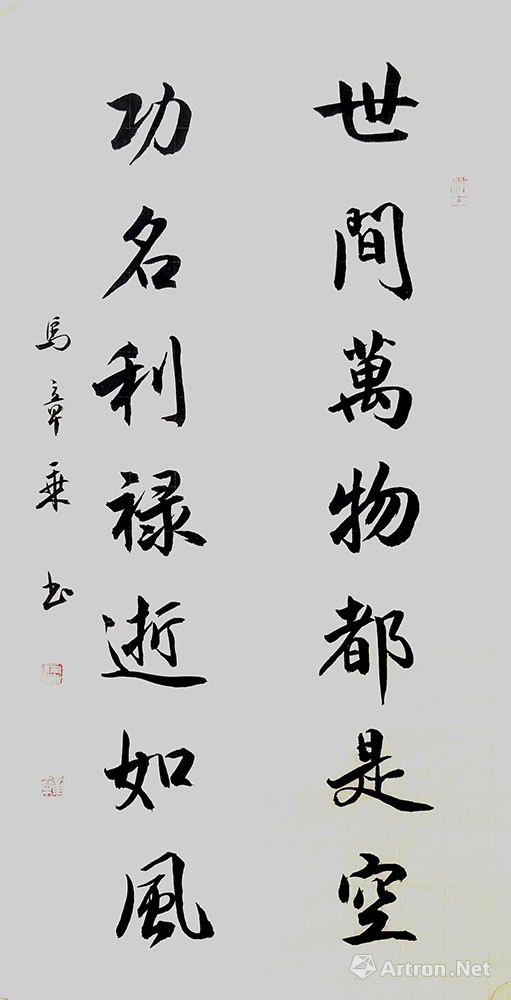 世間萬物都是空
功名利禄逝如風
馬章乘书
Artron.Net